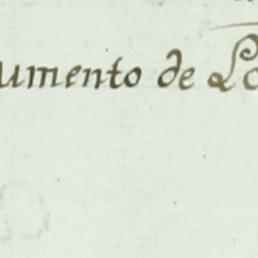 umento de Lo